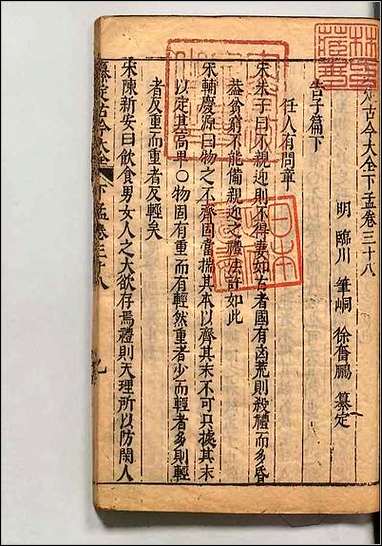 定古今大全下孟卷三十八
明 臨川 筆峒 徐奮鵬 纂定
告子篇下
任人有問章
宋朱子曰不親迎則不得妻如古者國有凶荒則殺禮而多昏
蓋貧窮不能備親迎之禮法許如此
宋輔慶源曰物之不齊固當揣其本以齊其末不可只據其末
以定其高卑〇物固有重而有輕然重者少而輕者多則輕
者反重而重者反輕矣
宋陳新安曰飲食男女人之大欲存焉禮則天理所以防閑人
纂定古今大全 下孟卷三十八